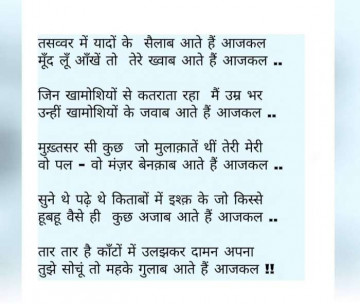 तसव्वर में यादों के सैलाब आते हैं आजकल
मूँद लूँ आँखें तो तेरे ख्वाब आते हैं आजकल ..
जिन खामोशियों से कतराता रहा मैं उम्र भर
उन्हीं खामोशियों के जवाब आते हैं आजकल ..
मुख़्तसर सी कुछ जो मुलाक़ातें थीं तेरी मेरी
वो पल - वो मंज़र बेनक़ाब आते हैं आजकल ..
सुने थे पढ़े थे किताबों में इश्क़ के जो किस्से
हूबहू वैसे ही कुछ अजाब आते हैं आजकल ..
तार तार है काँटों में उलझकर दामन अपना
तुझे सोचूं तो महके गुलाब आते हैं आजकल !!